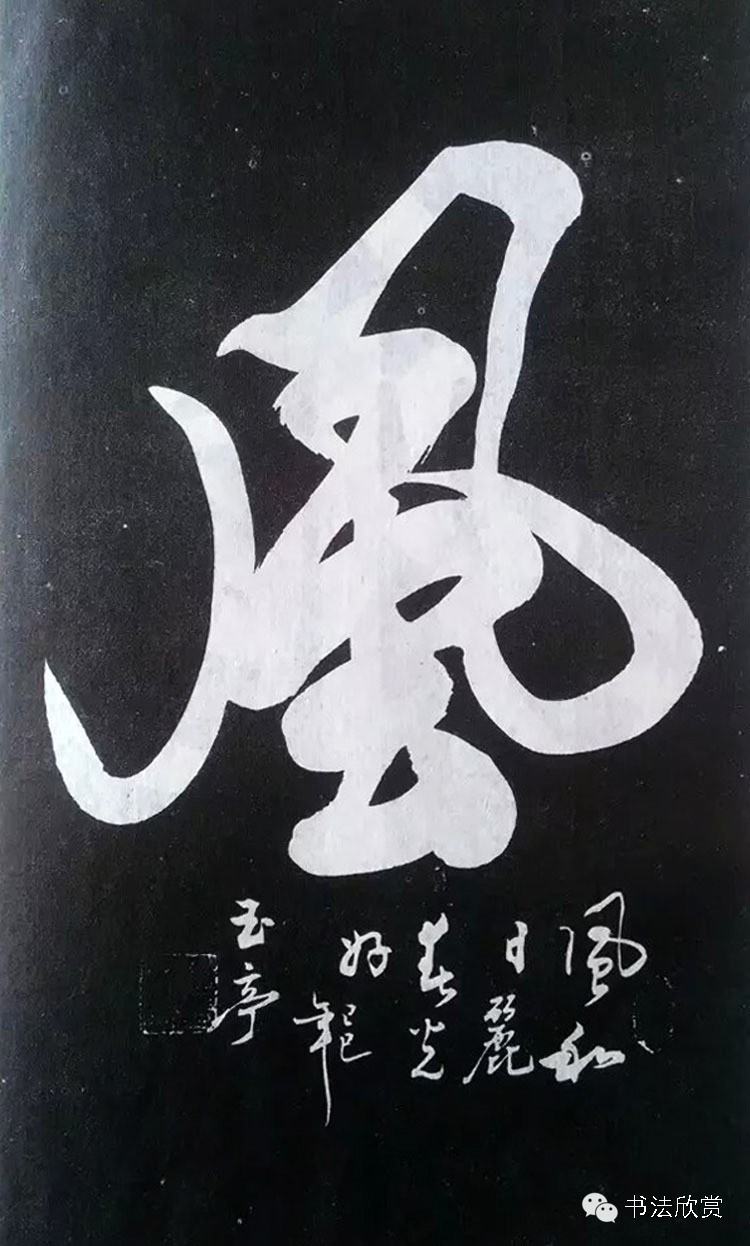 風
風和
日麗
春光
好範
玉亭
书法欣赏